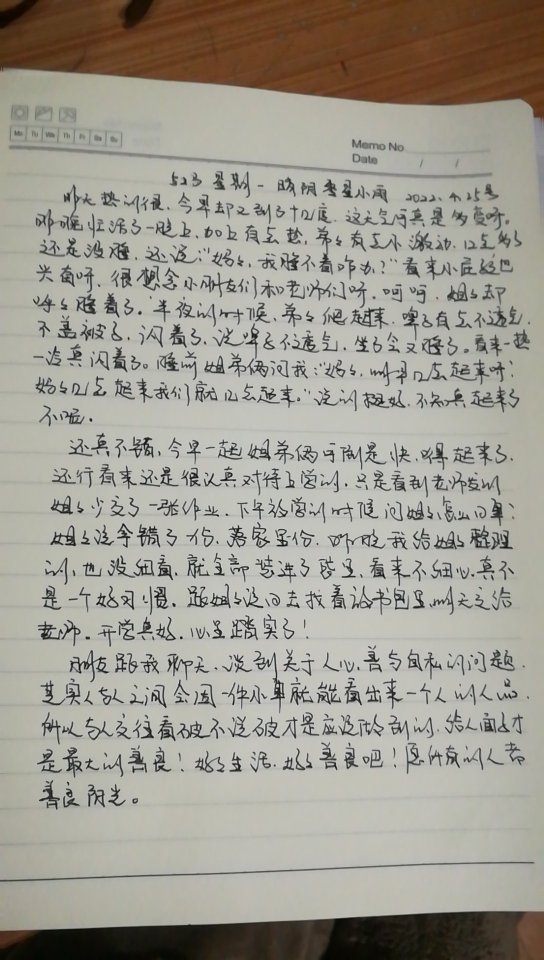 Mo Tu We Th Fr Sa Su
Memo No.
Date / /
523 星期一 晴阴雪是小雨 2022.4.25号
昨天热的很,今早却又到了十几度,这天气可真是多变呀。
昨晚忙活了一晚上,加上有点热,弟弟有点小激动,12点多了
还是没睡,还说:“妈妈,我睡不着咋办?”看来小屁孩也
兴奋呀,很想念小朋友们和老师们呀,呵呵,姐姐却
呼呼睡着了。半夜的时候,弟弟爬起来,嘴巴有点不透气,
不盖被子,闪着了,说嘴巴不透气,坐了会又睡了。看来一热
一冷真闪着了。睡前姐弟俩问我:“妈妈,明早几点起来呀?
妈妈几点起来我们就几点起来。”说的挺好,不知真起来了
不呢。
还真不错,今早一起姐弟俩可倒是快,噌起来了,
还行看来还是很认真对待上学的,只是看到老师发的
姐姐少交了一张作业,下午放学的时候问姐姐怎么回事?
姐姐说拿错了份,落家里份,昨晚我给姐姐整理
的,也没细看,就全部装进了袋里,看来不细心,真不
是一个好习惯,跟姐姐说回去找着论书包里,明天交给
老师。开学真好,心里踏实了!
朋友跟我聊天,谈到关于人心,善与自私的问题,
其实人与人之间会因一件小事就能看出来一个人的人品,
所以与人交往看破不说破才是应该做到的,给人面子才
是最大的善良!好好生活,好好善良吧!愿所有的人都
善良阳光。